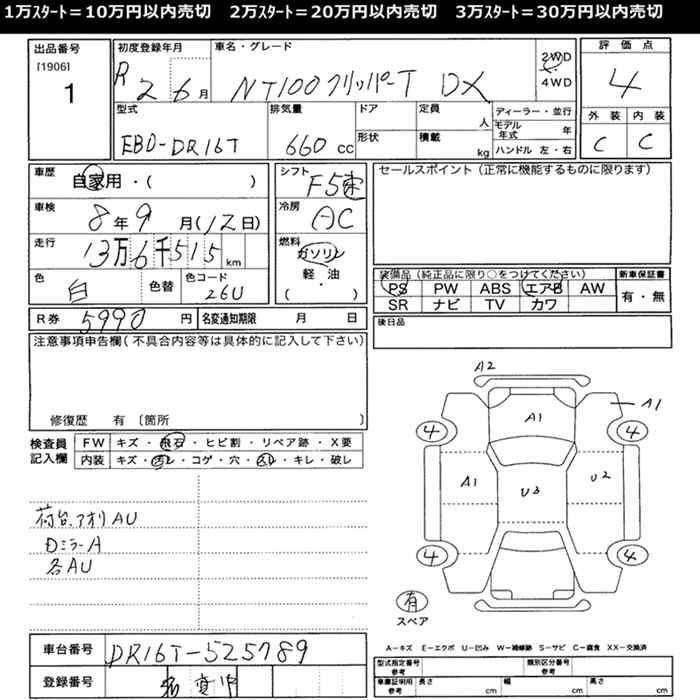 1万ｽﾀｰﾄ＝10万円以内売切　2万ｽﾀｰﾄ＝20万円以内売切　3万ｽﾀｰﾄ＝30万円以内売切
出品番号
[1906]
1
初度登録年月
R 2 6月
車名・グレード
NT100クリッパーT DX
2WD
4WD
評価点
4
外装 内装
C C
型式
EBD-DR16T
排気量
660 cc
ドア
形状
定員
人
積載
kg
ディーラー・並行
モデル年式 年
ハンドル 左・右
車歴
自家用・( )
車検
8年9月(12日)
走行
13万6千515km
色
白
色替
色コード
26U
シフト
F5速
冷房
AC
燃料
ガソリン
軽・油
( ・ )
セールスポイント（正常に機能するものに限ります）
装備品（純正品に限り○をつけてください）
PS PW ABS エアB AW
SR ナビ TV カワ
新車保証書
有・無
R券 5990円
名変通知期限 月 日
後日品
注意事項申告欄(不具合内容等は具体的に記入して下さい)
修復歴 有〔箇所 〕
検査員記入欄
FW キズ・飛石・ヒビ割・リペア跡・X要
内装 キズ・汚レ・コゲ・穴・スレ・キレ・破レ
荷台、アオリAU
DミラーA
各AU
A2
A1
A1
4
4
A1
U3
U2
4
4
有
スペア
A－キズ E－エクボ U－凹み W－補修跡 S－サビ C－腐食 XX－交換済
車台番号
DR16T-525789
登録番号
型式指定番号
参考
類別区分番号
参考
車庫証明用
参考
長さ cm
幅 cm
高さ cm